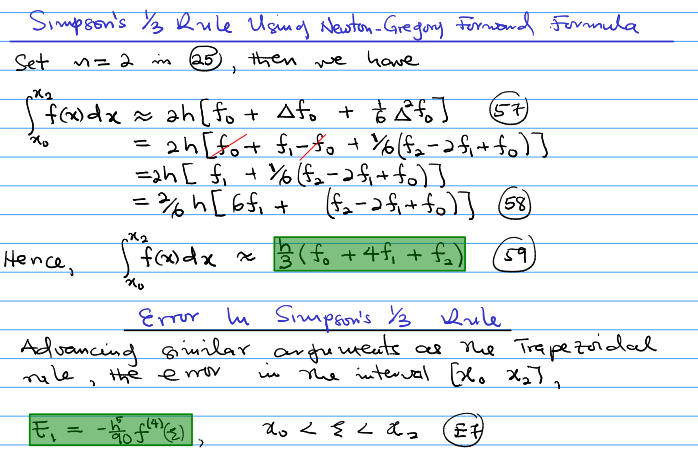 Simpson's 1/3 Rule Using Newton-Gregory Forward Formula
Set n = 2 in (25), then we have
∫_{x₀}^{x₂} f(x)dx ≈ 2h[f₀ + Δf₀ + 1/6 Δ²f₀] (57)
= 2h[f₀ + f₁ - f₀ + 1/6(f₂ - 2f₁ + f₀)]
= 2h[ f₁ + 1/6(f₂ - 2f₁ + f₀)]
= 2/6 h[6f₁ + (f₂ - 2f₁ + f₀)] (58)
Hence, ∫_{x₀}^{x₂} f(x)dx ≈ h/3 (f₀ + 4f₁ + f₂) (59)
Error In Simpson's 1/3 Rule
Advancing similar arguments as the Trapezoidal
rule, the error in the interval [x₀ x₂],
E₁ = -h⁵/90 f⁽⁴⁾(ξ), x₀ < ξ < x₂ (E7)